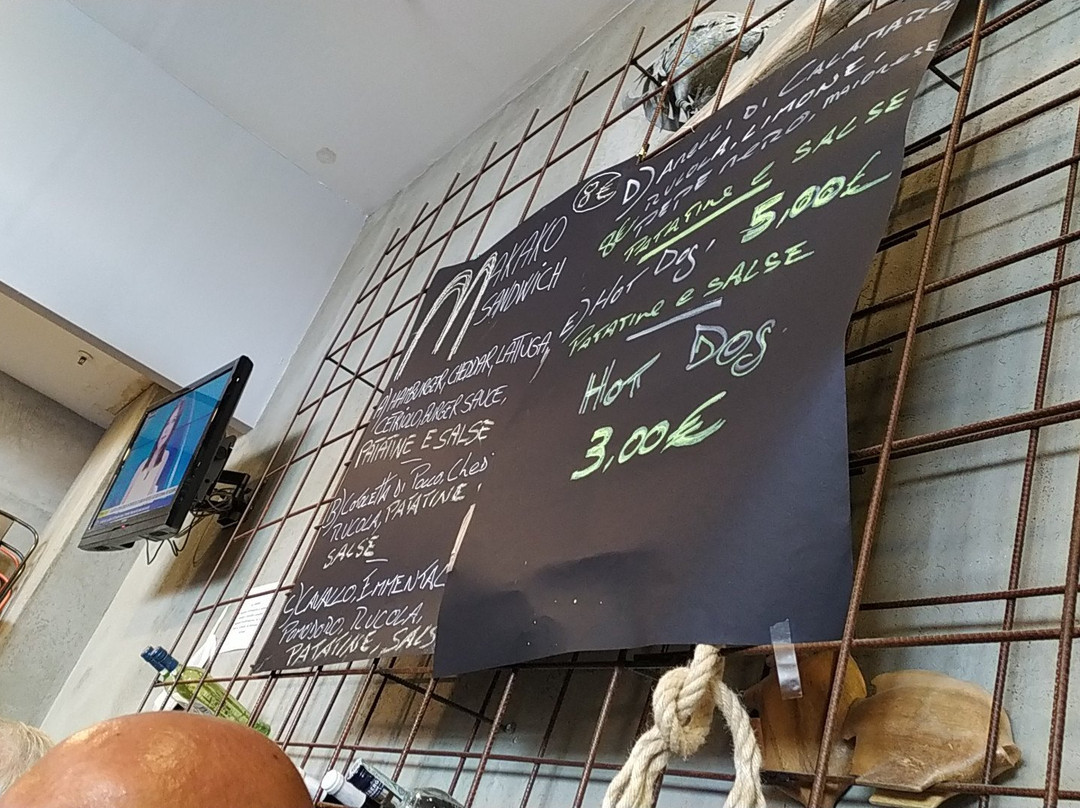 MAKAKO 8€
SANDWICH
A) HAMBURGER, CHEDDAR, LATTUGA,
CETRIOLO, BURGER SAUCE,
PATATINE E SALSE
B) COSCETTA DI POLLO, CHED
RUCOLA, PATATINE,
SALSE
C) CAVALLO, EMMENTAL
POMODORO, RUCOLA,
PATATINE, SALS
D) ANELLI DI CALAMARO,
8€ RUCOLA, LIMONE,
PEPE NERO, MAIONESE
PATATINE E SALSE
E) HOT DOG, 5,00€
PATATINE e SALSE
HOT DOG
3,00€